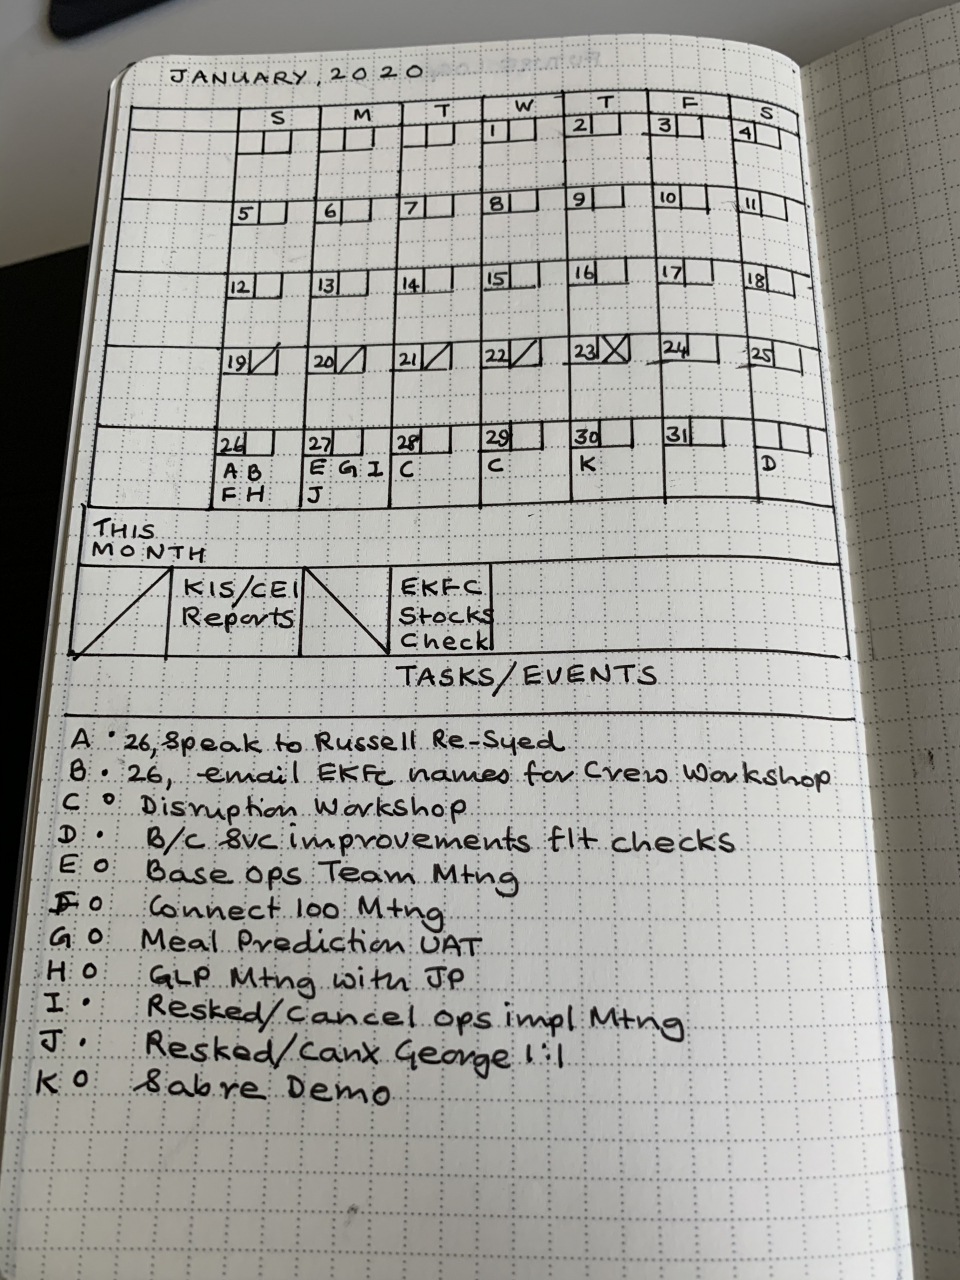 JANUARY, 2020
S M T W T F S
1 2 3 4
5 6 7 8 9 10 11
12 13 14 15 16 17 18
19 20 21 22 23 24 25
26 27 28 29 30 31
A B E G I C C K D
F H J
THIS
MONTH
KIS/CEI EKFC
Reports Stocks
Check
TASKS/EVENTS
A • 26, Speak to Russell Re-Syed
B • 26, email EKFC names for Crew Workshop
C o Disruption Workshop
D • B/C Svc improvements flt checks
E o Base Ops Team Mtng
F o Connect 100 Mtng
G o Meal Prediction UAT
H o GLP Mtng with JP
I • Resked/Cancel ops impl Mtng
J • Resked/Canx George 1:1
K o Sabre Demo